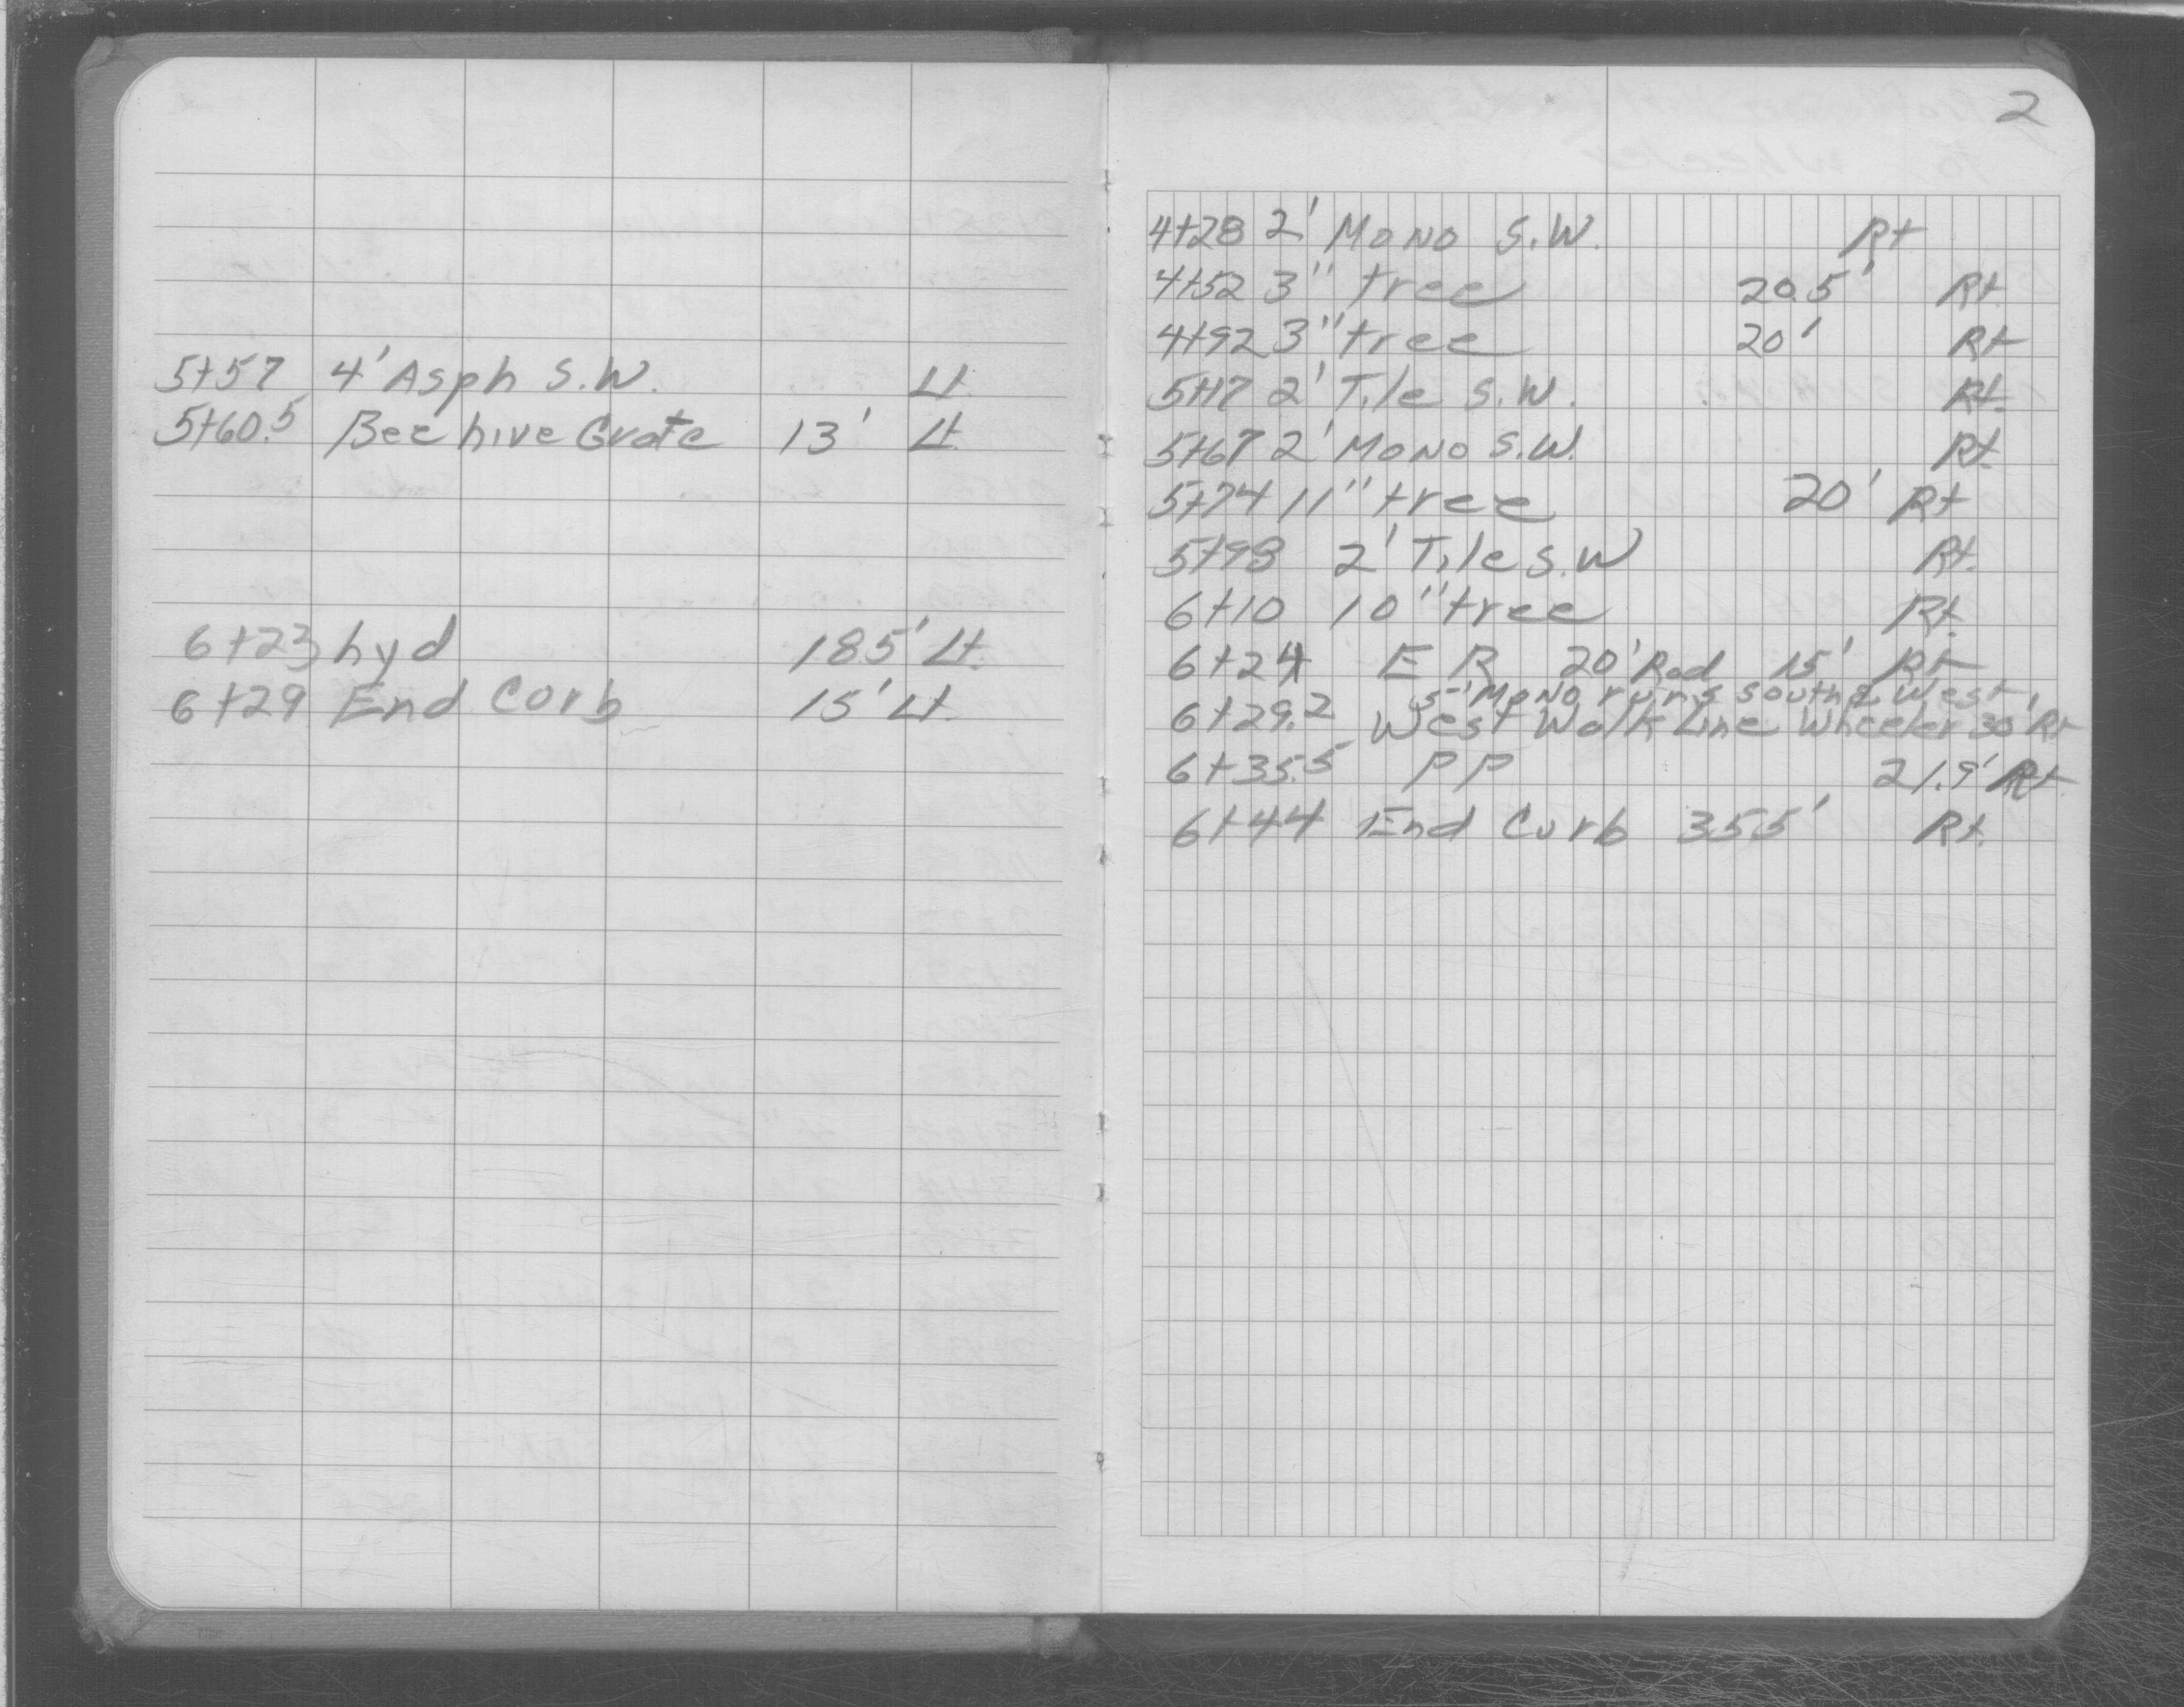 5+57 4' Asph S.W. Lt
5+60.5 Beehive Grate 13' Lt
6+23 hyd 185' Lt.
6+29 End Curb 15' Lt.
2
4+28 2' Mono S.W. Rt
4+52 3" tree 20.5' Rt
4+92 3" tree 20' Rt
5+17 2' Tile S.W. Rt.
5+67 2' Mono S.W. Rt.
5+74 11" tree 20' Rt
5+98 2' Tile S.W Rt.
6+10 10" tree Rt.
6+24 E R 20' Rad 15' Rt
5' Mono runs south & West
6+29.2 West Walk Line Wheeler 30' Rt
6+35.5 PP 21.9' Rt.
6+44 End Curb 35.5' Rt.